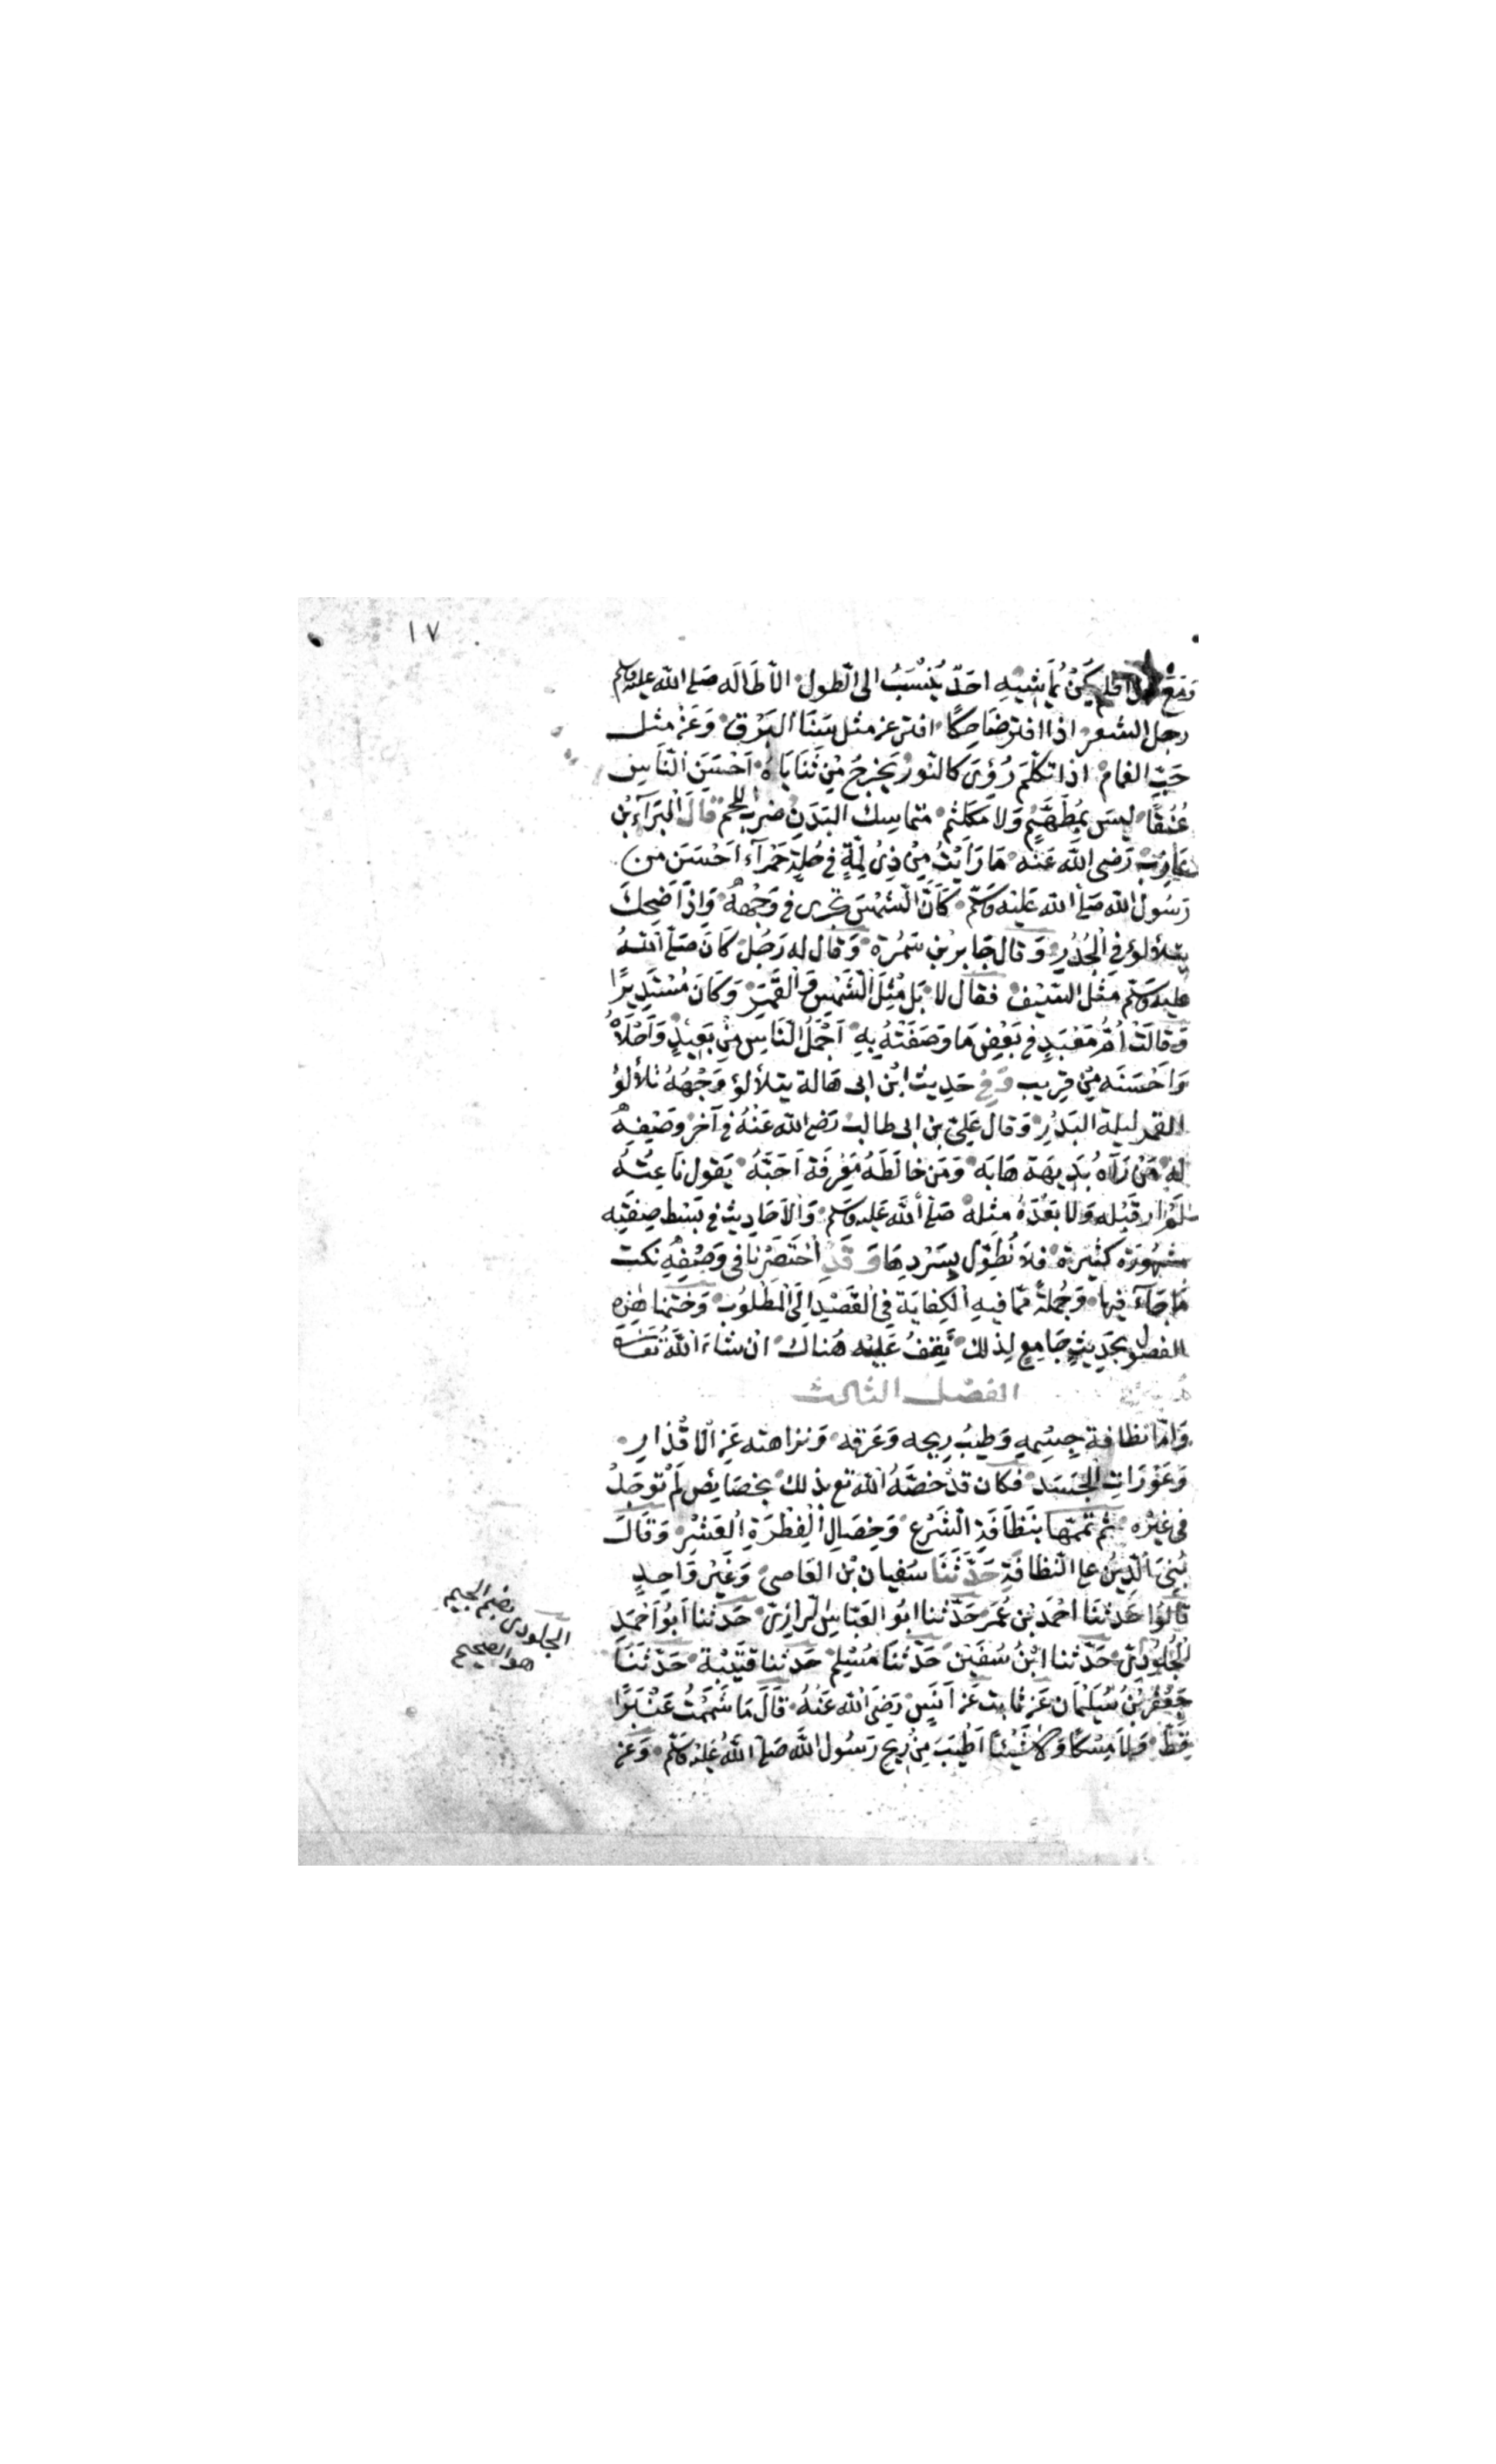 ١٧
وَمَعَ فلم يَكُنْ يُمَاشِيهِ اَحَدٌ يُنْسَبُ الى الطول الاّ طَالَه صَلى الله عليه وسلم
رجل الشعر اذا افتر ضَاحِكًا افتر عن مثل سَنَا البَرْقِ وَعَنْ مثل
حَبِّ الغمام اذا تكلّمَ رُؤِىَ كالنّور يَخرج مِنْ ثَنَايَاهُ اَحْسَن النَّاسِ
عُنُقًا ليسَ بِمُطَهَّمٍ وَلا مكلثَمٍ متماسِك البَدَنِ ضرب اللحم قَالَ البَرَآء بْن
عَازِب رَضى الله عَنه مَا رَاَيْتُ مِنْ ذِىْ لِمَّةٍ فى حُلةٍ حَمْرَآء اَحْسَنَ من
رَسُول الله صَلى الله عَليْه وَسَلم كَاَنَّ الشَّمْسَ تجرى فى وَجْهِهِ وَاِذَا ضَحِكَ
يتلألؤ فى الجُدُرِ وَقال جَابر بْنِ سَمُرة وَقال له رَجُل كَانَ صَلى اللهُ
عليه وسلم مثْل السَّيْف فقال لا بَل مِثْلَ الشَّمْسِ وَالْقَمَرِ وَكَانَ مُسْتَدِيرًا
وَقالَتْ اُمّ مَعْبَدٍ فى بَعْضِ مَا وَصَفَتْهُ بِهِ اَجْمَلُ النَّاسِ مِنْ بَعِيْدٍ وَاَحْلَاهُ
وَاَحْسَنَه مِنْ قرِيب وَفى حَدِيث ابْن ابى هَالة يتلألؤ وَجْهُهُ تلألؤ
القمر ليلة البَدْرِ وَقال عَلىّ بن ابى طالب رَضى الله عَنْهُ فى آخر وَصْفِهِ
له مَنْ رَآهُ بَدِيهَةً هَابَه وَمَن خالَطَهُ مَعْرِفَةً اَحَبَّهُ يَقول نَاعِتُهُ
لَمْ ار قَبْله وَلا بَعْدَهُ مثلهُ صَلى الله عَليه وسَلم وَالاحَاديث فى بَسْط صِفَتِه
مشهُورَة كثيرة فلا نُطَوِّل بِسَرْدِهَا وَقَدِ اخْتَصَرْنَا فى وَصْفِهِ نكت
مَا جَآءَ فيها وَجُملةً مِمّا فيهِ الكِفايَة فى القَصْدِ اِلَى المَطلُوب وَختمنا هٰذِه
الفصُول بِحَدِيثٍ جَامِعٍ لِذلك تَقِفُ عَليْه هُنَاك ان شاءَ اللّهُ تعَالى
الفصْل الثالث
وَاَمّا نظافة جِسْمِهِ وَطِيبُ رِيحه وَعَرَقِه وَنزَاهته عَنِ الْاَقْذارِ
وَعَوْرَاتِ الْجَسَد فكان قَدْ خَصَّهُ اللّه تع بذلك بخصَايِصَ لَمْ توجَدْ
فى غَيْرِه ثم تممَهَا بِنَظَافَةِ الشَّرْعِ وَخِصَالِ الْفِطْرَةِ العَشْرِ وَقَالَ
بُنِىَ الدِّيْن على النَّظافَةِ حَدَّثَنَا سَفيان بْن العَاصىْ وَغَيْر وَاحِدٍ
قَالُوا حَدثنَا احْمَد بْن عُمَر حَدّثنا ابُو العَبّاس الرّازِىّ حَدثنا اَبُو اَحْمَدِ
الجُلُودِىّ حَدّثنا ابْنُ سُفْيَن حَدّثنَا مُسْلِم حَدثنا قتَيْبَة حَدّثنَا
جَعْفر بْنُ سُلَيْمَان عَن ثَابت عَن اَنَسٍ رَضىَ الله عَنْهُ قَالَ مَا شَمَمْتُ عَنْبَرًا
قَطّ وَلا مِسْكًا وَلا شَيْئًا اَطْيَبَ مِنْ رِيحِ رَسُول الله صَلى اللهُ عَليه وَسَلم وَعَنْ
الجلودى بضم الجيم
هو الصحيح